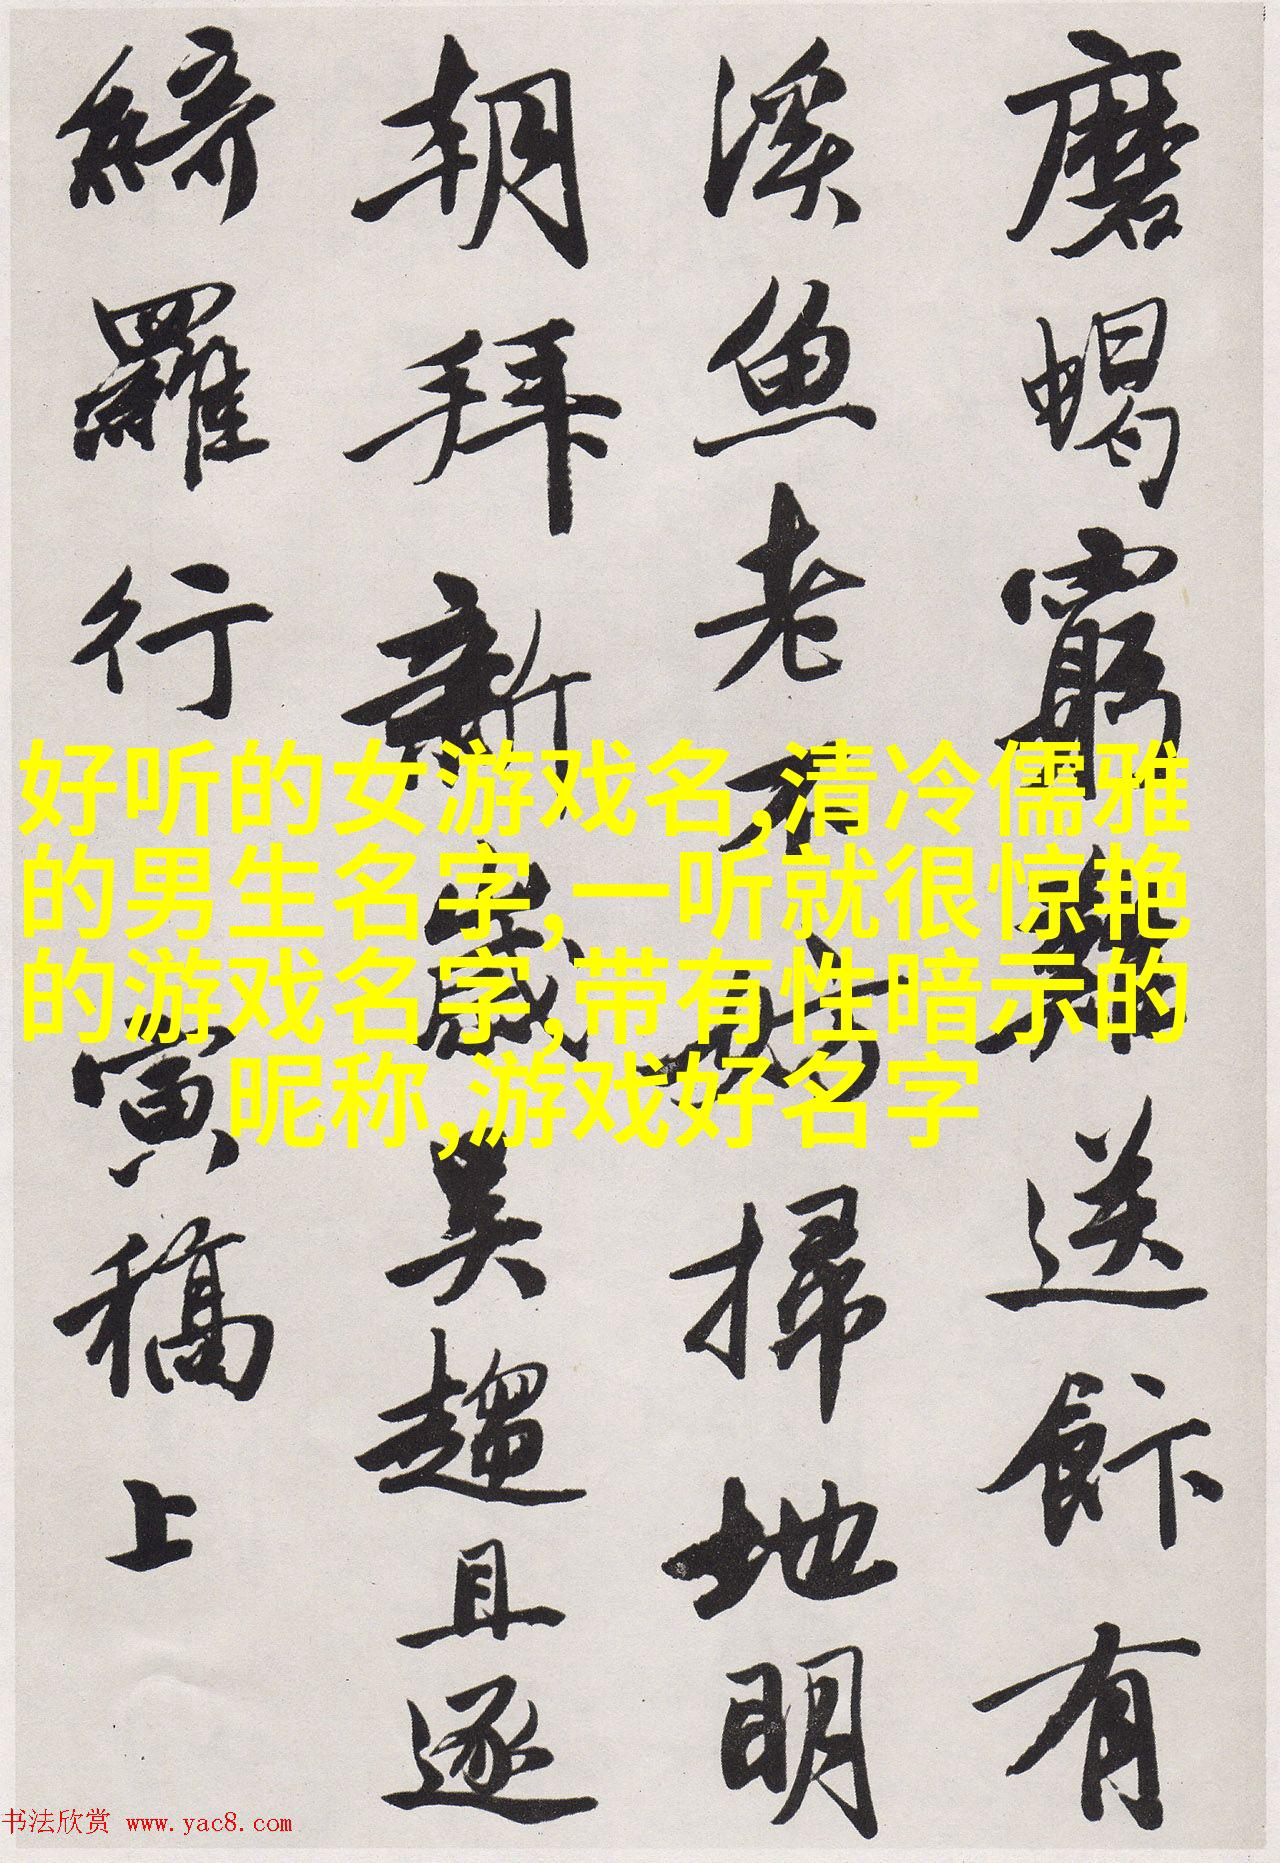 磨蝎窮送飰有
溪魚老不掃地明
朝拜新歲吳趨且逐
綺羅行
寅稿上
好听的女游戏名,清冷儒雅
的男生名字,一听就很惊艳
的游戏名字,带有性暗示的
昵称,游戏好名字
书法欣赏 www.yac8.com